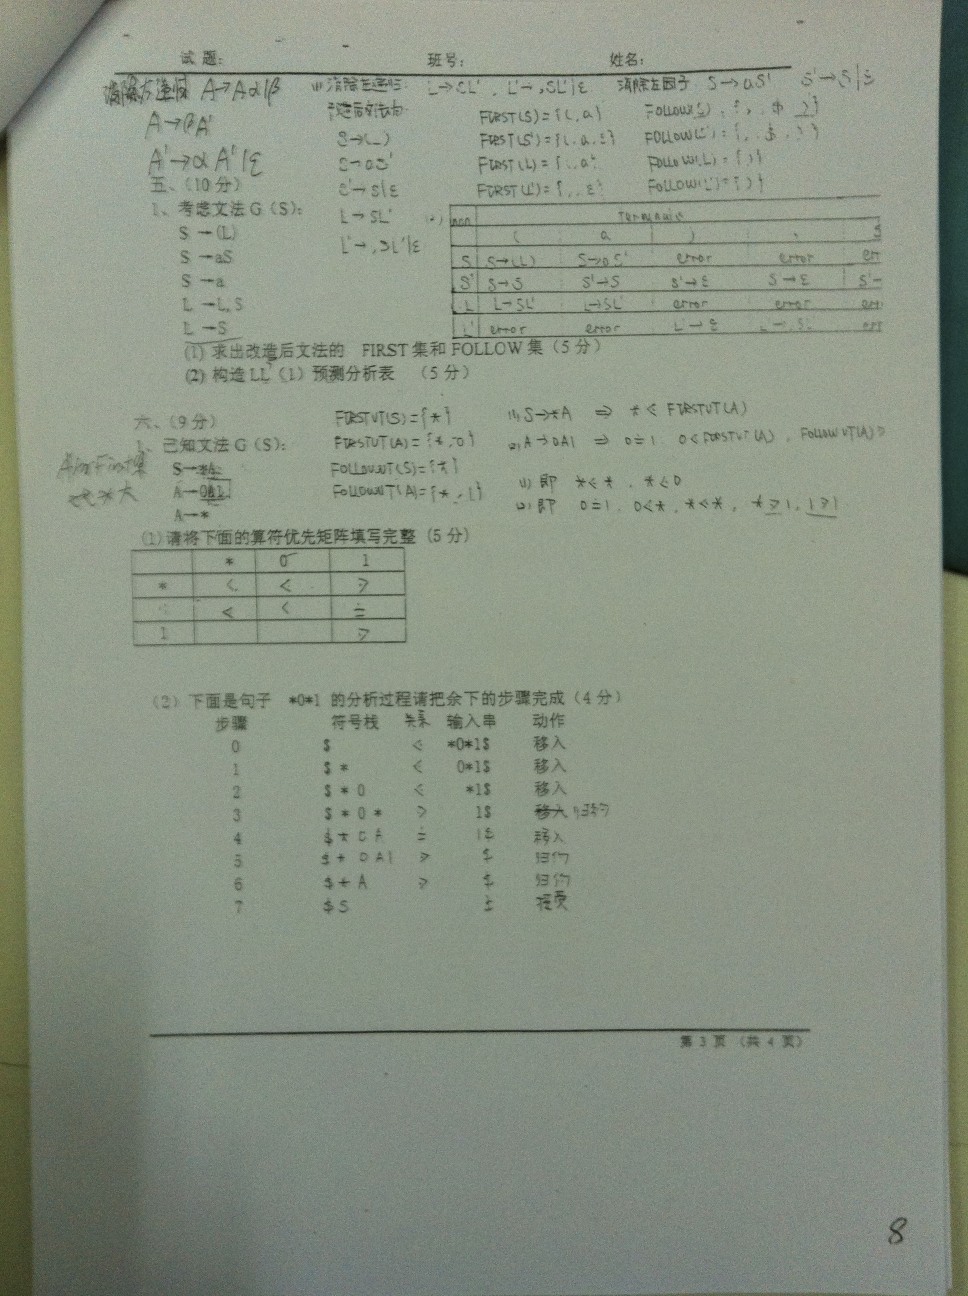 试 题： 班号： 姓名：
消除左递归 A→Aα|β (1) 消除左递归: L→SL' , L'→,SL'|ε 消除左因子 S→aS' S'→S|ε
A→βA'
A'→αA'|ε
S→(L)
S→aS'
S'→S|ε
L→SL'
L'→,SL'|ε
FIRST(S)={(,a}
FIRST(S')={(,a,ε}
FIRST(L)={(,a}
FIRST(L')={,,ε}
FOLLOW(L)={)}
FOLLOW(L')={)}
五、（10 分）
1、考虑文法 G（S）：
S →(L)
S →aS
S →a
L →L,S
L →S
(2) non Terminals
( a ) ,
S S→(L) S→aS' error error
S' S'→S S'→ε
L L→SL' L→SL' error error
L' error error L'→ε
(1) 求出改造后文法的 FIRST 集和 FOLLOW 集（5 分）
(2) 构造 LL（1）预测分析表 （5 分）
六、（9 分）
1、已知文法 G（S）：
S→*A
A→0A1
A→*
FIRSTVT(S)={*}
FIRSTVT(A)={*,0}
FOLLOWVT(S)={*}
FOLLOWVT(A)={*,1}
(1) S→*A ⇒ *⋖FIRSTVT(A)
(2) A→0A1 ⇒ 0≐1 0⋖FIRSTVT(A) , FOLLOWVT(A)⋗
(1) 即 *⋖* , *⋖0
(2) 即 0≐1, 0⋖*, *⋖*, *⋗1, 1⋗1
(1)请将下面的算符优先矩阵填写完整（5 分）
* 0 1
* ⋖ ⋖ ⋗
⋖ ⋖ ≐
1 ⋗
（2）下面是句子 *0*1 的分析过程请把余下的步骤完成（4 分）
步骤 符号栈 关系 输入串 动作
0 $ ⋖ *0*1$ 移入
1 $ * ⋖ 0*1$ 移入
2 $ * 0 ⋖ *1$ 移入
3 $ * 0 * ⋗ 1$ 移入 归约
4 $ * 0 A ≐ 1$ 移入
5 $ * 0 A1 ⋗ $ 归约
6 $ * A ⋗ $ 归约
7 $ S $ 接受
第 3 页 （共 4 页）
8